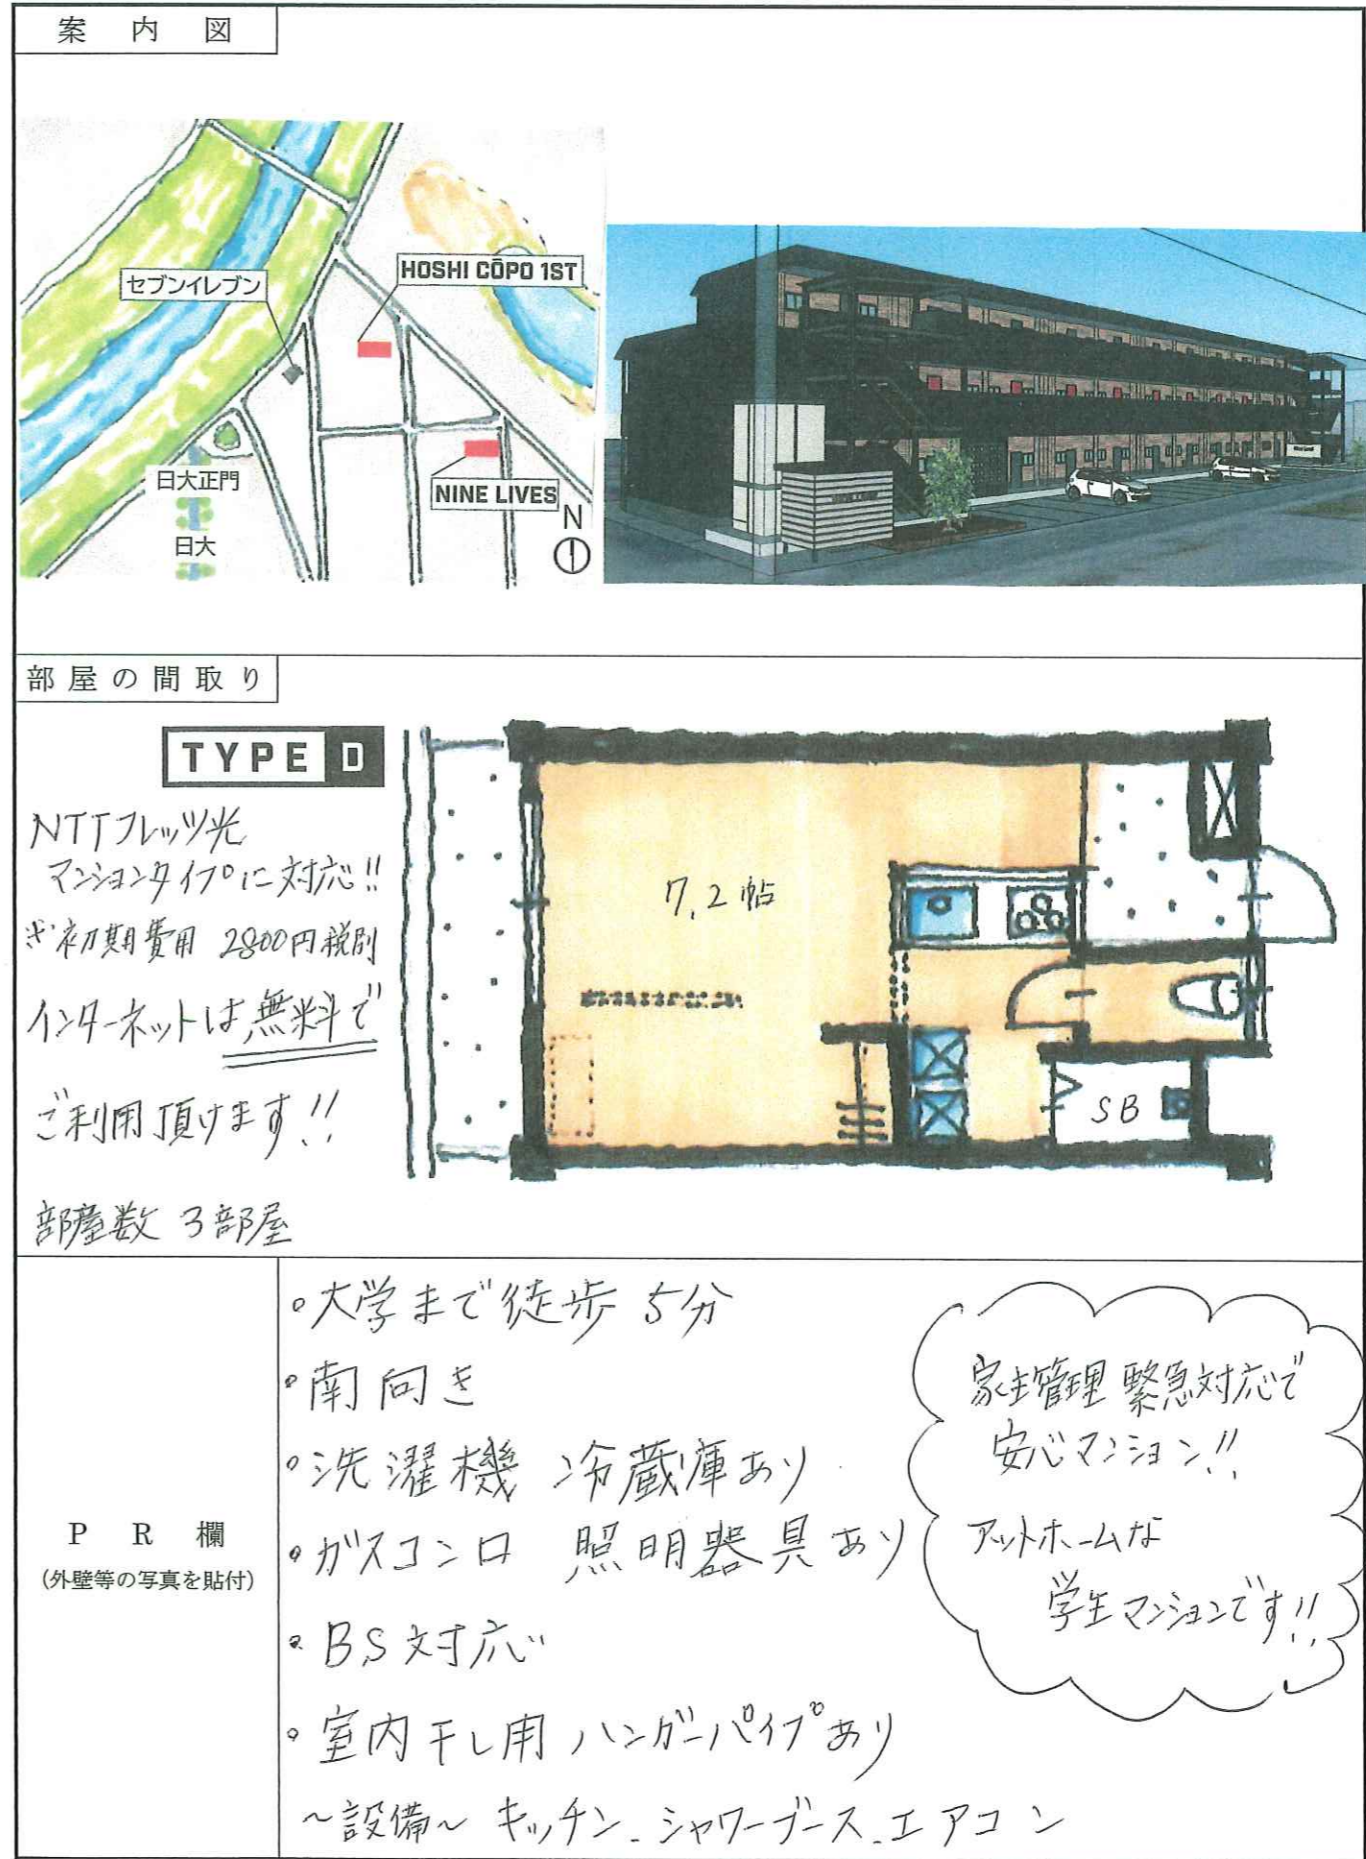 案内図
セブンイレブン
HOSHI CŌPO 1ST
日大正門
NINE LIVES
日大
N
部屋の間取り
TYPE D
NTTフレッツ光
マンションタイプに対応!!
※初期費用 2800円税別
インターネットは無料で
ご利用頂けます!!
部屋数 3部屋
7.2帖
SB
PR欄
(外壁等の写真を貼付)
。大学まで徒歩 5分
。南向き
。洗濯機 冷蔵庫あり
。ガスコンロ 照明器具あり
。BS対応
。室内干し用 ハンガーパイプあり
~設備~ キッチン、シャワーブース、エアコン
家主管理 緊急対応で
安心マンション!!
アットホームな
学生マンションです!!